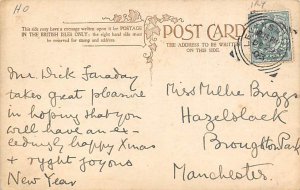 HO
This side may have a message written upon it for POSTAGE
IN THE BRITISH ISLES ONLY: the right-hand side must
be reserved for stamp and address.
POST CARD
THE ADDRESS TO BE WRITTEN
ON THIS SIDE.
Mr. Dick Faraday
takes great pleasure
in hoping that you
will have an ex-
ceedingly happy Xmas
+ ryght joyous
New Year
Miss Millie Briggs
Hazelslack
Broughton Park
Manchester.